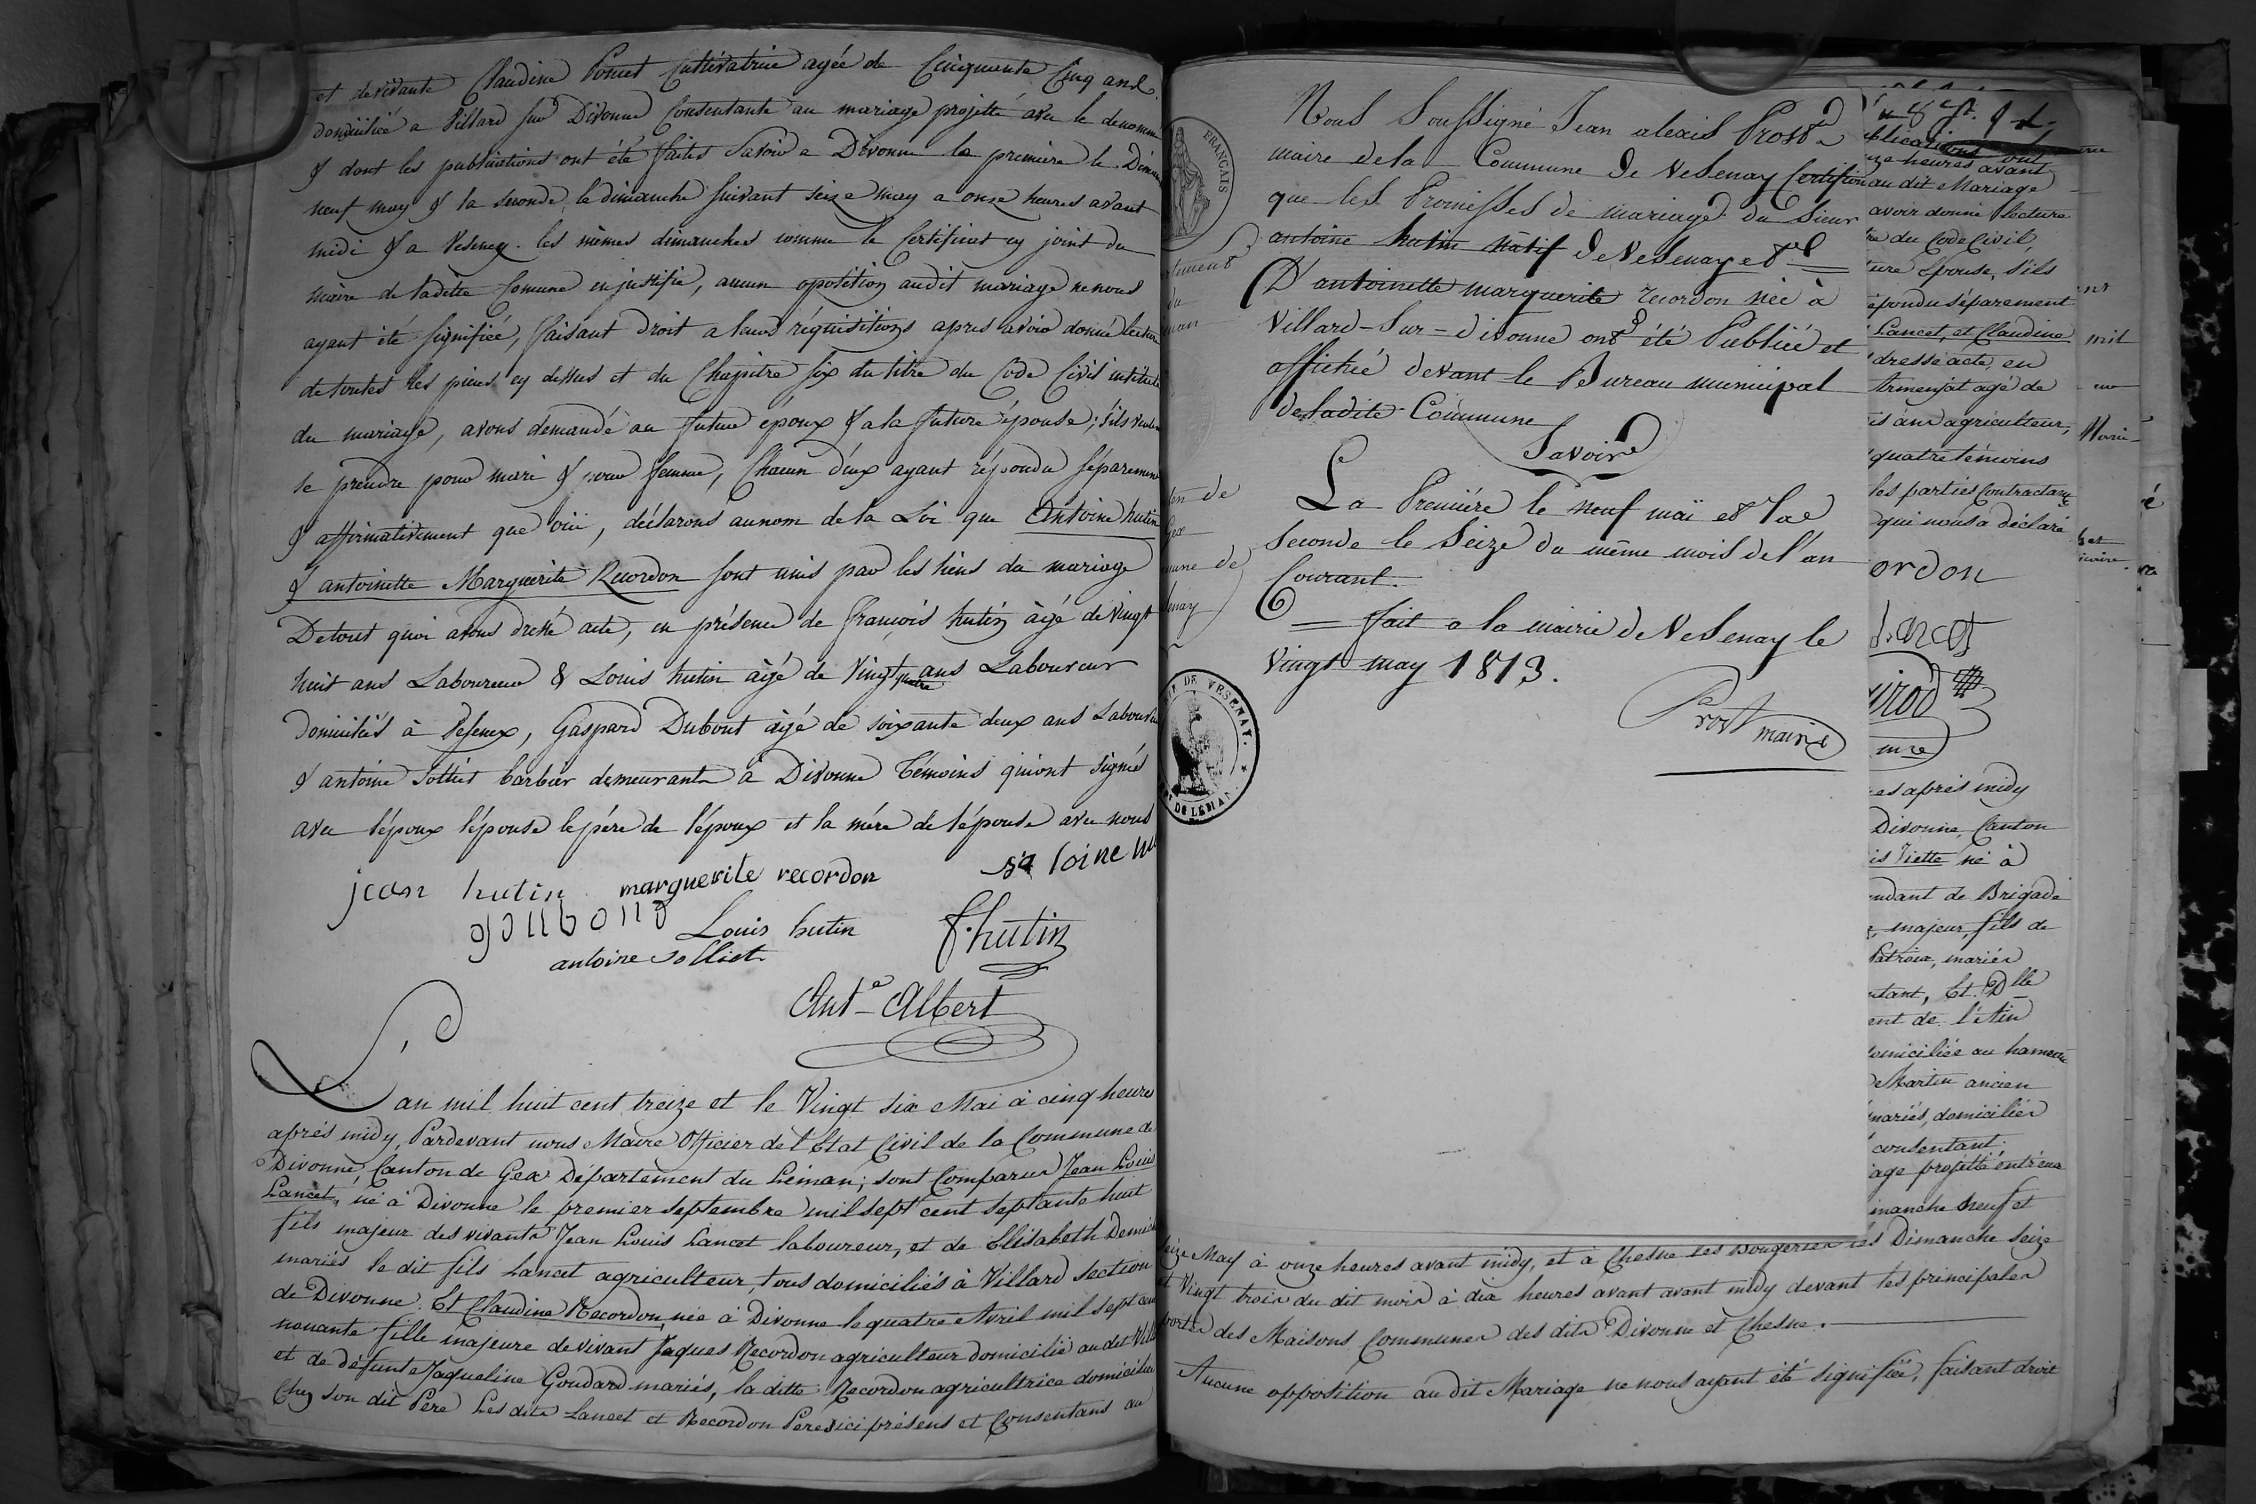 et de vivante Claudine Poncet Cultivatrice agée de Cinquante Cinq ans
domiciliée a Villard sur Divonne Consentante au mariage projetté avec le denommé
& dont les publications ont été faites Savoir a Divonne la premiere le Dimanche
neuf may & la seconde le dimanche suivant seize may a onze heures avant
midi & a Vesenex les mêmes dimanches comme le Certificat cy joint du
maire de ladite Comune en justifie, aucun oposition audit mariage ne nous
ayant été signifiée, faisant droit a leurs réquisitions apres avoir donné lecture
de toutes les pieces cy dessus et du Chapitre six du titre du Code Civil intitulé
du mariage, avons démandé au futur époux & a la future épouse; s'ils veulent
se prendre pour mari & pour femme, Chacun d'eux ayant répondu séparement
& affirmativement que oui, déclarons au nom de la Loi que Antoine hutin
& antoinette Marguerite Recordon sont unis par les liens du mariage
De tout quoi avons dressé acte, en présence de françois hutin âgé de vingt
huit ans Laboureur & Louis hutin âgé de Vingt quatre ans Laboureur
domiciliés à Vesenex, Gaspard Dubout âgé de soixante deux ans Laboureur
& antoine Solliet barbier demeurants à Divonne Témoins qui ont signés
avec l'époux l'épouse le père de l'époux et la mére de l'épouse avec nous
jean hutin marguerite recordon
Louis hutin f. hutin
antoine solliet
Ant.e Albert
L'an mil huit cent treize et le Vingt six Mai à cinq heures
après midy, Pardevant nous Maire Officier de l'Etat Civil de la Commune de
Divonne Canton de Gex Département du Léman; sont Comparus Jean Louis
Lancet, né à Divonne le premier septembre mil sept cent septante huit
fils majeur des vivants Jean Louis Lancet laboureur, et de Elisabeth
mariés le dit fils Lancet agriculteur, tous domiciliés à Villard section
de Divonne. Et Claudine Recordon née à Divonne le quatre Avril mil sept cent
nonante fille majeure de vivant Jaques Recordon agriculteur domicilié au dit
et de défunte Jaqueline Goudard mariés, la ditte Recordon agricultrice domiciliée
Chez son dit Père Les dits Lancet et Recordon Peres ici présens et Consentans au
FRANÇAIS
Nous Soussigné Jean alexis Prost
maire dela Commune de Vesenay Certifion
que les Promesses de mariage du Sieur
antoine hutin natif de Vesenay et
D' antoinette marguerite recordon née à
Villard-Sur-divonne ont été Publiée et
affichée devant le Bureau municipal
de ladite Commune
Savoir
La Premiére le neuf mai et la
seconde le Seize du même mois de l'an
Courant.
fait a la mairie de Vesenay le
vingt may 1813.
Prost maire
DE VESENAY
DU LÉMAN
avant
au dit Mariage
avoir donné lecture
du Code Civil,
Epouse, s'ils
épondu séparement
Lancet, et Claudine
dressé acte, en
agé de
ans agriculteur,
quatre témoins
les parties Contractans
qui nous a déclaré
ordon
Lancet
es après midy
Divonne, Canton
né à
de Brigade
majeur, fils de
mariés
tant, Et Dlle
de l'Ain
domiciliée au hameau
Martin ancien
mariés, domiciliés
consentant.
age projetté entr'eux
manche neuf et
seize May à onze heures avant midy, et à Chesne les Bougeries les Dimanche seize
et Vingt trois du dit mois à dix heures avant avant midy devant les principales
portes des Maisons Communes des dits Divonne et Chesne.
Aucune opposition au dit Mariage ne nous ayant été signifiée, faisant droit